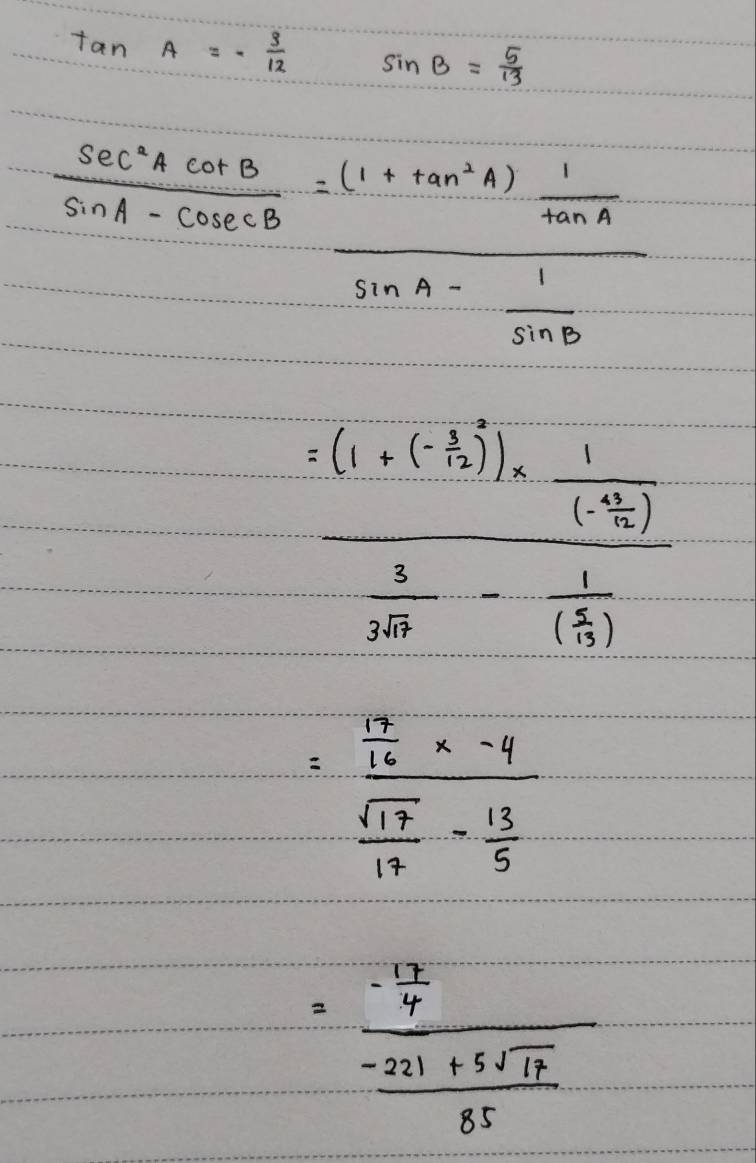 tan A = - 3/12    sin B = 5/13
sec²A cot B / sinA - cosecB = (1 + tan²A) 1/tan A / sin A - 1/sinB
= (1 + (-3/12)²) × 1/(-3/12) / 3/3√17 - 1/(5/13)
= 17/16 × -4 / √17/17 - 13/5
= -17/4 / -221 + 5√17/85